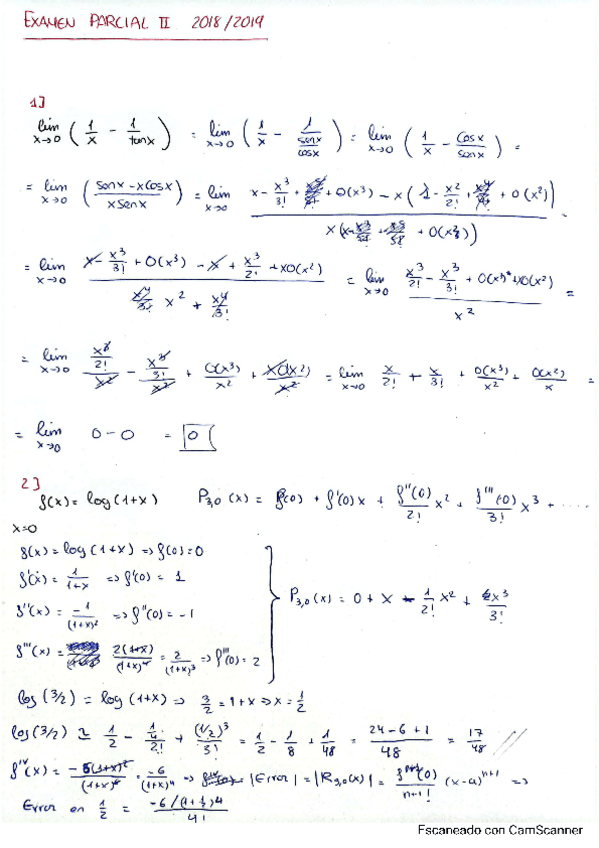 EXAMEN PARCIAL II 2018/2019
1]
lim x→0 (1/x - 1/tanx) = lim x→0 (1/x - 1/(senx/cosx)) = lim x→0 (1/x - cosx/senx) =
= lim x→0 ((senx - xcosx)/(x senx)) = lim x→0 (x - x³/3! + O(x³) - x(1 - x²/2! + O(x²)))/(x(x + O(x²)))
= lim x→0 (x - x³/3! + O(x³) - x + x³/2! + xO(x²))/(x² + x⁴/3!) = lim x→0 (x³/2! - x³/3! + O(x³) + xO(x²))/x² =
= lim x→0 (x³/2!)/x² - (x³/3!)/x² + O(x³)/x² + xO(x²)/x² = lim x→0 x/2! + x/3! + O(x³)/x² + O(x²)/x =
= lim x→0 0 - 0 = 0
2]
f(x) = log(1+x) P3,0(x) = f(0) + f'(0)x + f''(0)/2! x² + f'''(0)/3! x³ + ....
x=0
f(x) = log(1+x) ⇒ f(0) = 0
f'(x) = 1/(1+x) ⇒ f'(0) = 1
P3,0(x) = 0 + x - 1/2! x² + 2x³/3!
f''(x) = -1/(1+x)² ⇒ f''(0) = -1
f'''(x) = 2(1+x)/(1+x)⁴ = 2/(1+x)³ ⇒ f'''(0) = 2
log(3/2) = log(1+x) ⇒ 3/2 = 1+x ⇒ x = 1/2
log(3/2) ≃ 1/2 - (1/4)/2! + (1/2)³/3! = 1/2 - 1/8 + 1/48 = (24-6+1)/48 = 17/48 //
fIV(x) = -6(1+x)²/(1+x)⁶ = -6/(1+x)⁴ ⇒ |Error| = |R3,0(x)| = fⁿ⁺¹(0)/n+1! (x-a)ⁿ⁺¹ ⇒
Error en 1/2 = (-6/(1+1)⁴)/4!
Escaneado con CamScanner